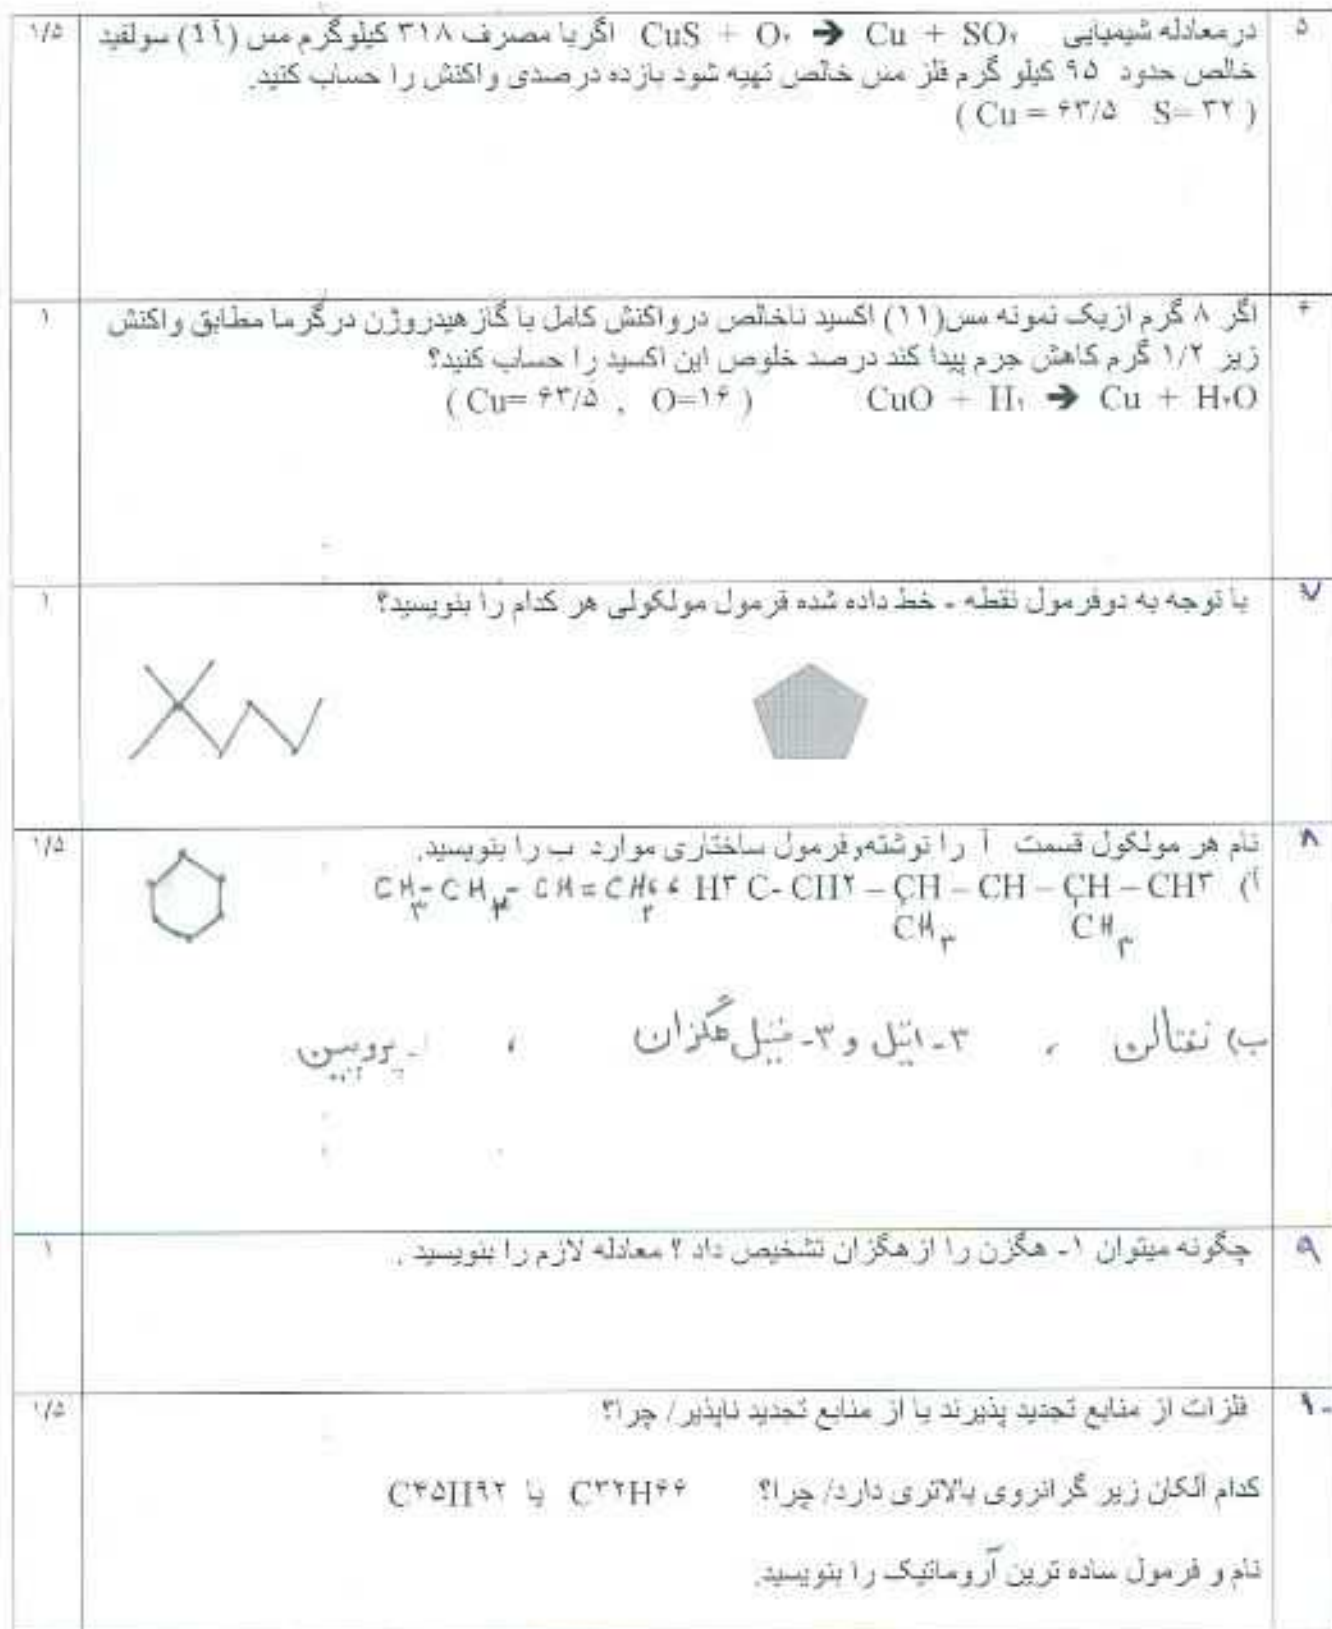 ۵ در معادله شیمیایی CuS + O۲ ➔ Cu + SO۲ اگر با مصرف ۳۱۸ کیلوگرم مس (۱۱) سولفید ۱/۵
خالص حدود ۹۵ کیلو گرم فلز مس خالص تهیه شود بازده درصدی واکنش را حساب کنید.
( Cu = ۶۳/۵ S= ۳۲ )
۶ اگر ۸ گرم ازیک نمونه مس(۱۱) اکسید ناخالص درواکنش کامل با گاز هیدروژن درگرما مطابق واکنش ۱
زیر ۱/۲ گرم کاهش جرم پیدا کند درصد خلوص این اکسید را حساب کنید؟
CuO + H۲ ➔ Cu + H۲O ( Cu= ۶۳/۵ , O=۱۶ )
۷ با توجه به دوفرمول نقطه - خط داده شده فرمول مولکولی هر کدام را بنویسید؟ ۱
۸ نام هر مولکول قسمت آ را نوشته وفرمول ساختاری موارد ب را بنویسید. ۱/۵
آ) H۳ C- CH۲ – CH – CH – CH – CH۳ ، CH۳- CH۲- CH = CH۲
CH۳ CH۳
ب) نفتالن ، ۳-اتیل و ۳- متیل هگزان ، پروپین
۹ چگونه میتوان ۱- هگزن را ازهگزان تشخیص داد ؟ معادله لازم را بنویسید . ۱
۱۰ فلزات از منابع تجدید پذیرند یا از منابع تجدید ناپذیر/ چرا؟ ۱/۵
کدام آلکان زیر گرانروی بالاتری دارد/ چرا؟ C۳۲H۶۶ یا C۴۵H۹۲
نام و فرمول ساده ترین آروماتیک را بنویسید.